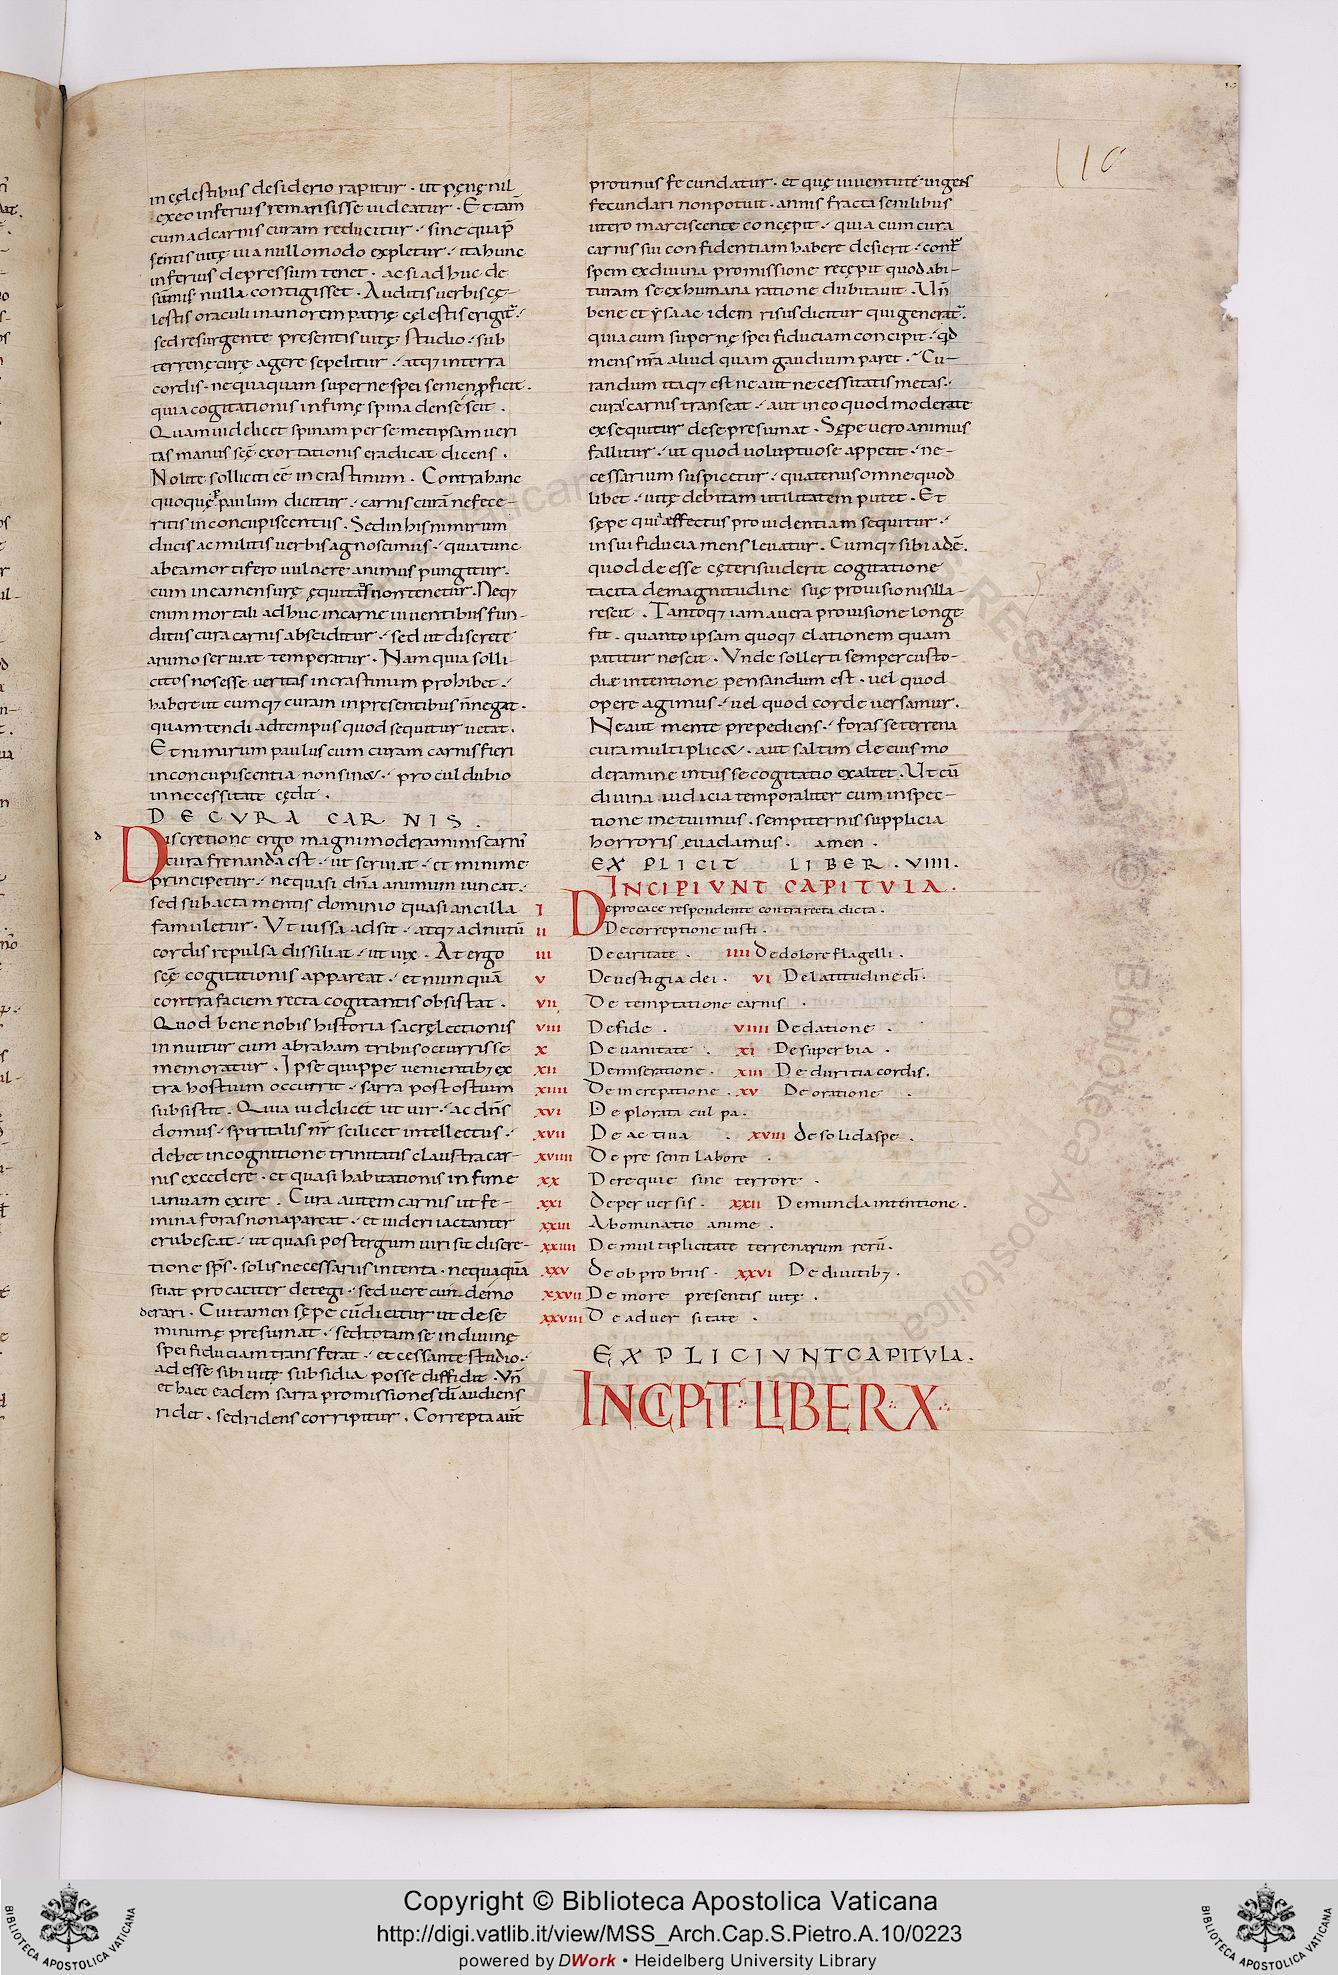 110
in cęlestibus desiderio rapitur . ut pęnę nil
ex eo inferius remansisse uideatur . Et tam̄
cum ad carnis curam reducitur . sine qua p̄
sentis uitę uia nullomodo expletur . ita hunc
inferius depressum tenet . ac si ad huc de
sum̄is nulla contigisset . Auditis uerbis cę-
lestis oraculi in amorem patrię cęlestis erigit̄ .
sed resurgente presentis uitę studio . sub
terrenę curę agere sepelitur . atq; in terra
cordis . nequaquam superne spei semen proficit .
quia cogitationis infimę spina densescit .
Quam uidelicet spinam per semetipsam ueri
tas manus scę exortationis eradicat dicens .
Nolite solliciti eē in crastinum . Contra hanc
quoque paulum dicitur . carnis curā ne fece-
ritis in concupiscentiis . Sed in his nimirum
ducis ac militis uerbis agnoscimus . quia tunc
ab ea mortifero uulnere animus pungitur .
cum in ea mensurę ęquitas non tenetur . Neq;
enim mortali adhuc in carne uiuentibus fun-
ditus cura carnis absciditur . sed ut discrete
animo seruiat temperatur . Nam quia solli-
citos nos esse ueritas in crastinum prohibet .
habere ut cumq; curam in presentibus n̄ negat .
quam tendi ad tempus quod sequitur uetat .
Et nimirum paulus cum curam carnis fieri
in concupiscentia non sinæ . procul dubio
in necessitate cędit .
DE CVRA CARNIS .
d
Discretione ergo magni moderaminis carnis
cura frenanda est . ut seruiat . et minime
principetur . ne quasi dn̄a animum uincat .
sed subacta mentis dominio quasi ancilla
famuletur . Ut iussa adsit . atq; ad nutū
cordis repulsa dissiliat . ut uix . At ergo
scę cogitationis appareat . et numquā
contra faciem recta cogitantis obsistat .
Quod bene nobis historia sacrę lectionis
innuitur cum abraham tribus occurrisse
memoratur . Ipse quippe uenientib; ex
tra hostium occurrit . sarra post ostium
subsistit . Quia uidelicet ut uir . ac dn̄s
domus . spiritalis nr̄ scilicet intellectus .
debet in cognitione trinitatis claustra car-
nis excedere . et quasi habitationis infime
ianuam exire . Cura autem carnis ut fe-
mina foras non apareat . et uideri iactanter
erubescat . ut quasi post ergum uiri sit discre-
tione sp̄s . solis necessariis intenta . nequaquā
sciat procaciter detegi . sed uerecun demo
derari . Cui tamen sępe cū dicitur ut de se
minimę presumat . sed totam se in diuinę
spei fiduciam transferat . et cessante studio .
ad esse sibi uitę subsidia posse diffidit . Vn̄
et haec eadem sarra promissiones dī audiens
ridet . sed ridens corripitur . Correpta aut̄
protinus fecundatur . et quę iuuentute uigens
fecundari non potuit . annis fracta senilibus
utero marcescente concępit . quia cum cura
carnis sui confidentiam habere desierit . contra
spem ex diuina promissione recępit quod abi-
turam se ex humana ratione dubitauit . Un̄
bene et ysaac idem risus dicitur qui generat̄ .
quia cum supernę spei fiduciam concipit . qd
mens nr̄a aliud quam gaudium paret . Cu-
randum itaq; est ne aut necessitatis metas .
cura carnis transeat . aut in eo quod moderate
exsequitur de se presumat . Sępe uero animus
fallitur . ut quod uoluptuose appetit . ne-
cessarium suspicetur . quatenus omne quod
libet . uitę debitam utilitatem putet . Et
sępe quia effectus prouidentiam sequitur .
in sui fiducia mens leuatur . Cumq; sibi adē .
quod de esse cęteris uiderit cogitatione
tacita de magnitudine suę prouisionis illa-
rescit . Tantoq; iam a uera prouisione longe
fit . quanto ipsam quoq; elationem quam
patitur nescit . Vnde sollerti semper custo-
diæ intentione pensandum est . uel quod
opere agimus . uel quod corde uersamur .
Ne aut mente prepediens . foras se terrena
cura multiplicæ . aut saltim de eius mo
deramine intus se cogitatio exaltet . Ut cū
diuina iudicia temporaliter cum inspec-
tione metuimus . sempiternis supplicia
horroris euadamus . amen .
EXPLICIT LIBER . VIIII .
INCIPIVNT CAPITVLA .
I Deprocace respondente contra recta dicta .
II De correptione iusti .
III De caritate . IIII De dolore flagelli .
V De uestigia dei . VI De latitudine dī .
VII De temptatione carnis .
VIII De fide . VIIII De datione .
X De uanitate . XI De superbia .
XII De miseratione . XIII De duritia cordis .
XIIII De increpatione . XV De oratione .
XVI Deplorata culpa .
XVII De actiua . XVIII de solidaspe .
XVIIII De presenti labore .
XX De requie sine terrore .
XXI de peruersis . XXII De munda intentione .
XXIII Abominatio anime .
XXIIII De multiplicitate terrenarum rerū .
XXV de obprobriis . XXVI De diuitib; .
XXVII De more presentis uitę .
XXVIII De aduersitate .
EXPLICIVNT CAPITVLA .
INCIPIT LIBER X
Copyright © Biblioteca Apostolica Vaticana
http://digi.vatlib.it/view/MSS_Arch.Cap.S.Pietro.A.10/0223
powered by DWork • Heidelberg University Library
BIBLIOTECA APOSTOLICA VATICANA
BIBLIOTECA APOSTOLICA VATICANA